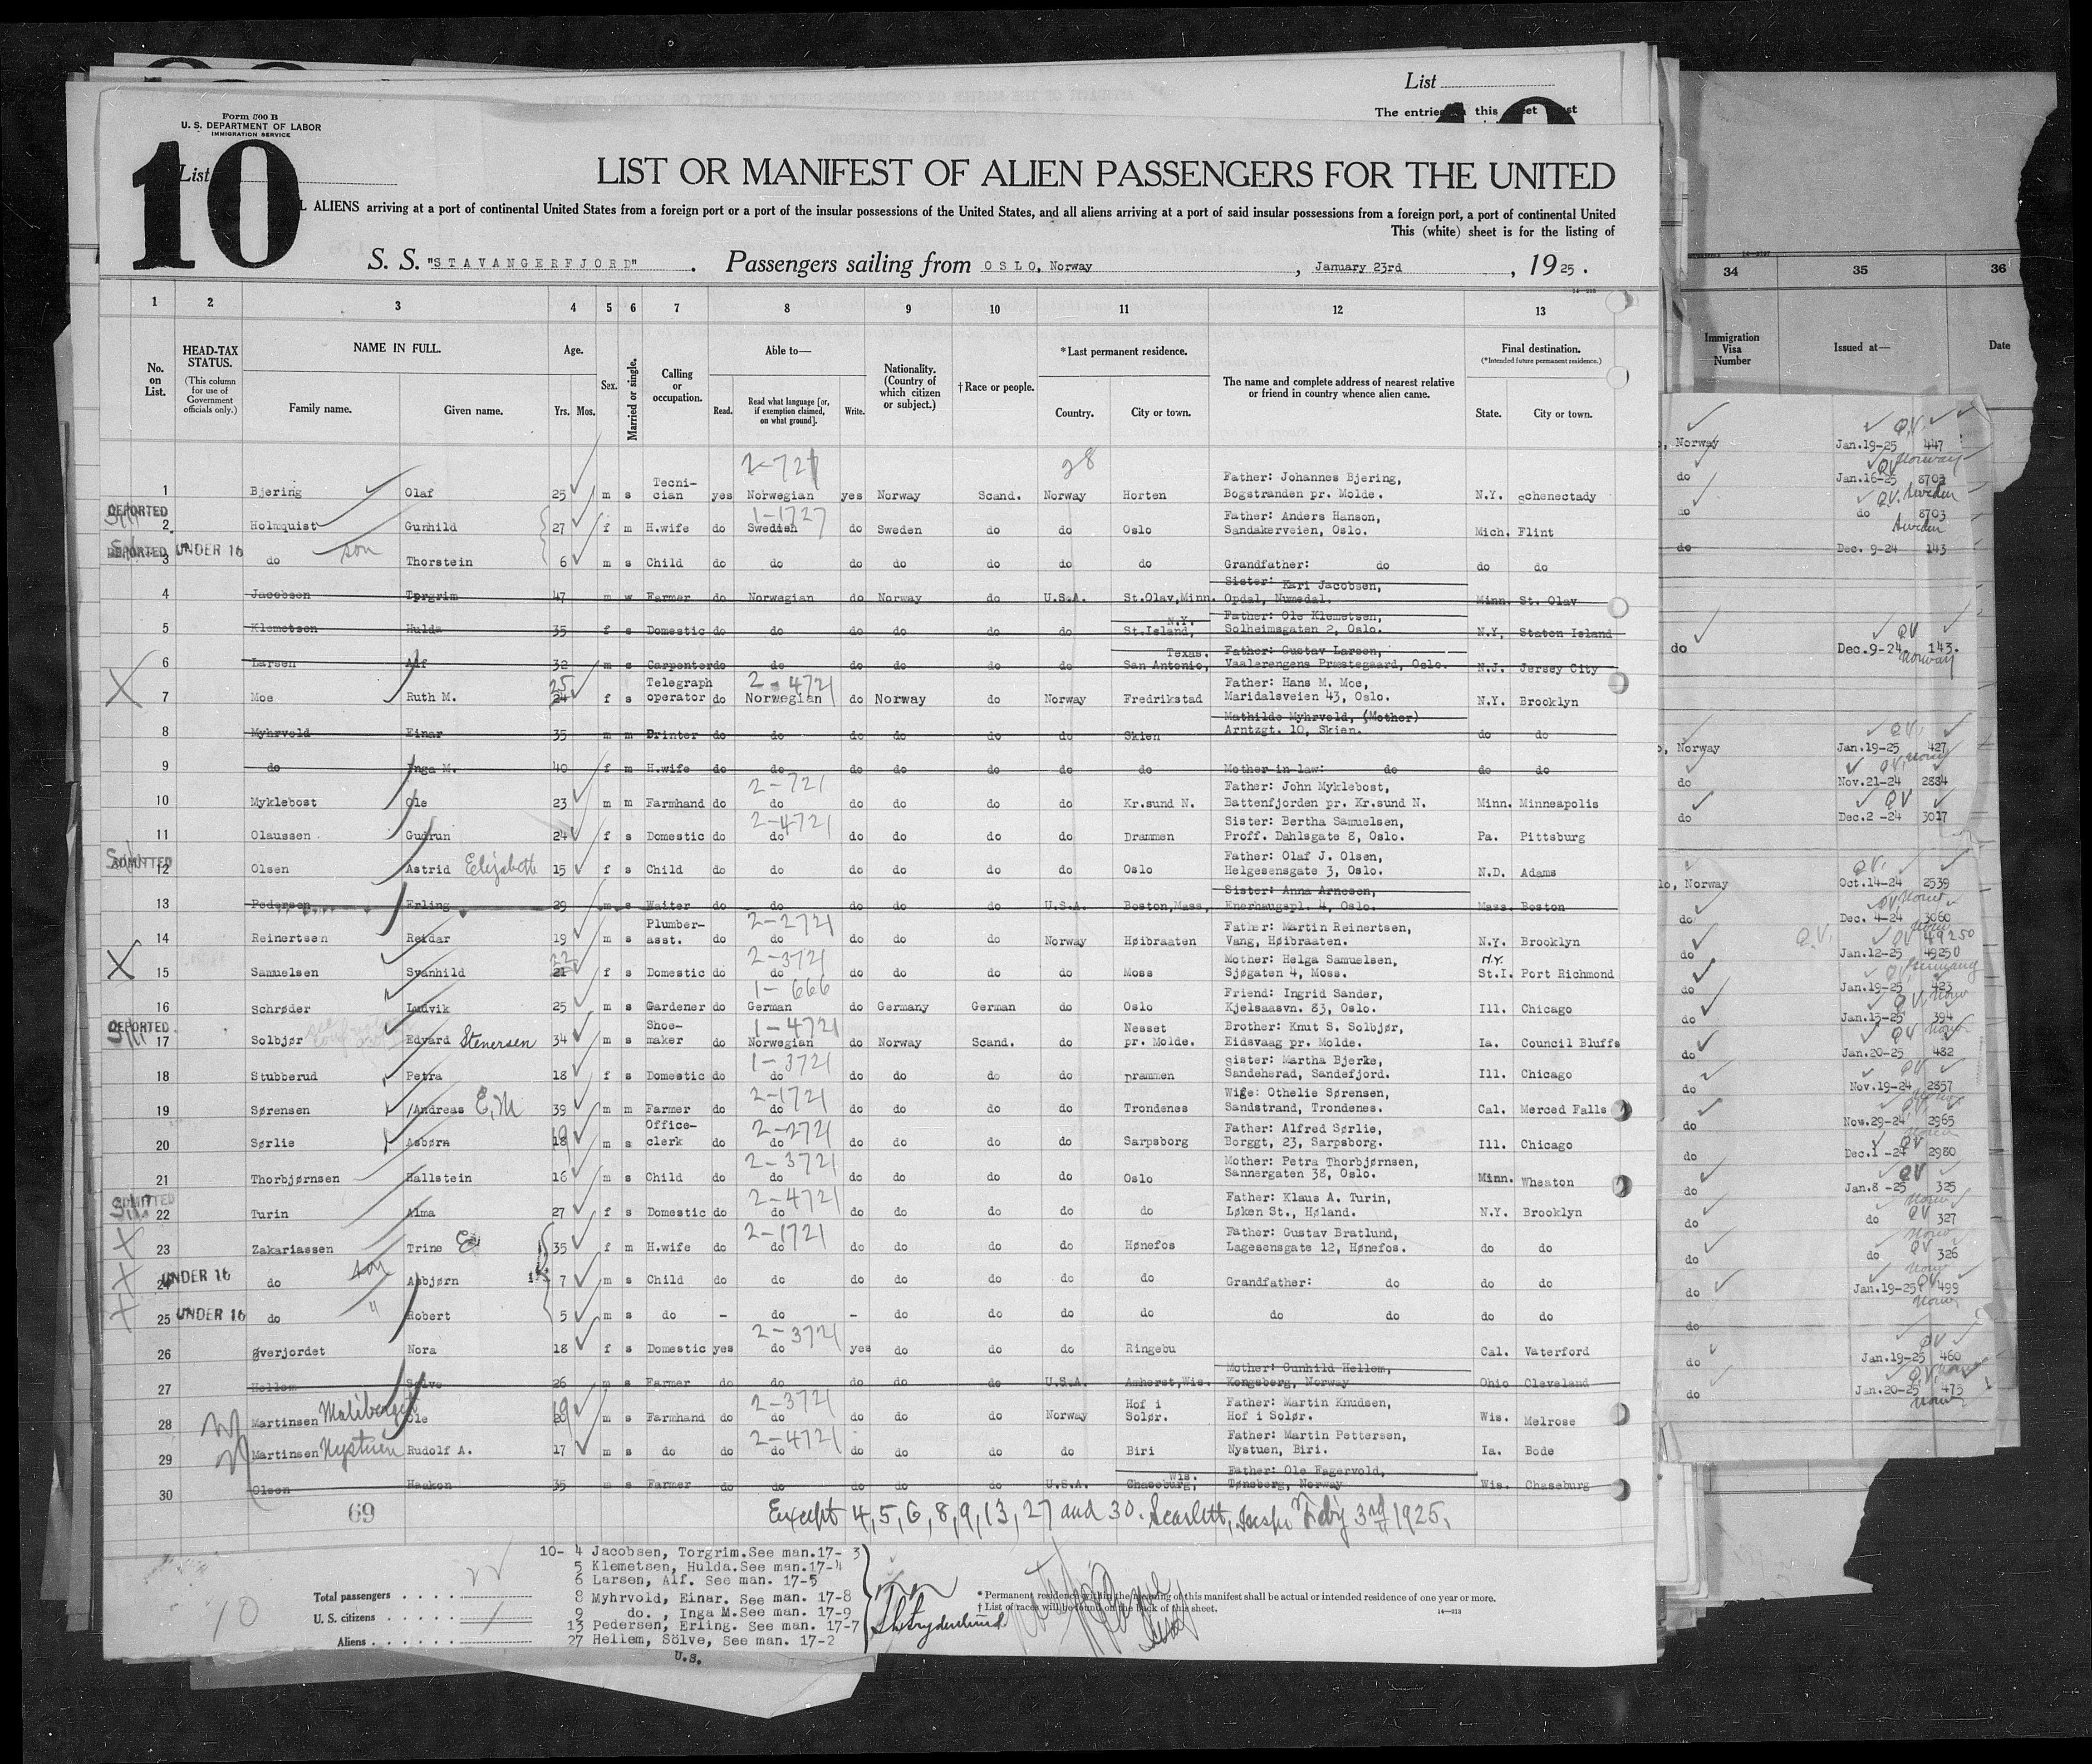 List
The entries this sheet
Form 500 B
U. S. DEPARTMENT OF LABOR
IMMIGRATION SERVICE
10
List
LIST OR MANIFEST OF ALIEN PASSENGERS FOR THE UNITED
L ALIENS arriving at a port of continental United States from a foreign port or a port of the insular possessions of the United States, and all aliens arriving at a port of said insular possessions from a foreign port, a port of continental United
This (white) sheet is for the listing of
S. S. "STAVANGERFJORD". Passengers sailing from OSLO, Norway, January 23rd, 1925.
1 2 3 4 5 6 7 8 9 10 11 12 13
No. on List.
HEAD-TAX STATUS.
(This column for use of Government officials only.)
NAME IN FULL.
Family name. Given name.
Age.
Yrs. Mos.
Sex.
Married or single.
Calling or occupation.
Able to—
Read. Read what language [or, if exemption claimed, on what ground]. Write.
Nationality. (Country of which citizen or subject.)
†Race or people.
*Last permanent residence.
Country. City or town.
The name and complete address of nearest relative or friend in country whence alien came.
Final destination.
(*Intended future permanent residence.)
State. City or town.
34 35 36
Immigration Visa Number
Issued at—
Date
2-721 28
1 Bjering Olaf 25 m s Techni-cian yes Norwegian yes Norway Scand. Norway Horten Father: Johannes Bjering, Bogstranden pr. Molde. N.Y. Schenectady
DEPORTED 2 Holmquist Gunhild 27 f m H.wife do Swedish 1-1727 do Sweden do do Oslo Father: Anders Hanson, Sandakerveien, Oslo. Mich. Flint
DEPORTED UNDER 16 3 do son Thorstein 6 m s Child do do do do do do do Grandfather: do do do
4 Jacobsen Torgrim 47 m w Farmer do Norwegian do Norway do U.S.A. St.Olav,Minn. Sister: Kari Jacobsen, Opdal, Numedal. Minn. St. Olav
5 Klemetsen Hulda 35 f s Domestic do do do do do do St.Island, N.Y. Father: Ole Klemetsen, Solheimsgaten 2, Oslo. N.Y. Staten Island
6 Larsen Alf 32 m s Carpenter do do do do do do San Antonio, Texas. Father: Gustav Larsen, Vaalerengens Præstegaard, Oslo. N.J. Jersey City
X 7 Moe Ruth M. 24 25 f s Telegraph operator do Norwegian 2-4721 do Norway do Norway Fredrikstad Father: Hans M. Moe, Maridalsveien 43, Oslo. N.Y. Brooklyn
8 Myhrvold Einar 35 m m Printer do do do do do do Skien Mathilde Myhrvold, (Mother) Arntzgt. 10, Skien. do do
9 do Inga M. 40 f m H.wife do do do do do do do Mother-in-law: do do do
10 Myklebost Ole 23 m m Farmhand do do 2-721 do do do do Kr.sund N. Father: John Myklebost, Battenfjorden pr. Kr.sund N. Minn. Minneapolis
11 Olaussen Gudrun 24 f s Domestic do do 2-4721 do do do do Drammen Sister: Bertha Samuelsen, Proff. Dahlsgate 8, Oslo. Pa. Pittsburg
ADMITTED 12 Olsen Astrid Elizabeth 15 f s Child do do do do do do Oslo Father: Olaf J. Olsen, Helgesensgate 3, Oslo. N.D. Adams
13 Pedersen Erling 29 m s Waiter do do do do do U.S.A. Boston,Mass, Sister: Anna Arnesen, Enerhaugspl. 4, Oslo. Mass. Boston
14 Reinertsen Reidar 19 m s Plumber-asst. do do 2-2721 do do do Norway Høibraaten Father: Martin Reinertsen, Vang, Høibraaten. N.Y. Brooklyn
X 15 Samuelsen Svanhild 21 22 f s Domestic do do 2-3721 do do do do Moss Mother: Helga Samuelsen, Sjøgaten 4, Moss. N.Y. St.I. Port Richmond
16 Schrøder Ludvik 25 m s Gardener do German 1-666 do Germany German do Oslo Friend: Ingrid Sander, Kjelsaasvn. 83, Oslo. Ill. Chicago
DEPORTED 17 Solbjør Edvard Stenersen 34 m s Shoe-maker do Norwegian 1-4721 do Norway Scand. do Nesset pr. Molde. Brother: Knut S. Solbjør, Eidsvaag pr. Molde. Ia. Council Bluffs
18 Stubberud Petra 18 f s Domestic do do 1-3721 do do do do Drammen Sister: Martha Bjerke, Sandeherad, Sandefjord. Ill. Chicago
19 Sørensen Andreas E.M 39 m m Farmer do do 2-1721 do do do do Trondenes Wige: Othelie Sørensen, Sandstrand, Trondenes. Cal. Merced Falls
20 Sørlie Asbørn 18 19 m s Office-clerk do do 2-2721 do do do do Sarpsborg Father: Alfred Sørlie, Borggt, 23, Sarpsborg. Ill. Chicago
21 Thorbjørnsen Hallstein 16 m s Child do do 2-3721 do do do do Oslo Mother: Petra Thorbjørnsen, Sannergaten 38, Oslo. Minn. Wheaton
ADMITTED 22 Turin Alma 27 f s Domestic do do 2-4721 do do do do do Father: Klaus A. Turin, Løken St., Høland. N.Y. Brooklyn
X 23 Zakariassen Trine E 35 f m H.wife do do 2-1721 do do do do Hønefos Father: Gustav Bratlund, Lagesensgate 12, Hønefos. do do
X 24 UNDER 16 do son Asbjørn 7 m s Child do do do do do do do Grandfather: do do do
X 25 UNDER 16 do " Robert 5 m s do - do - do do do do do do do do
26 Øverjordet Nora 18 f s Domestic yes do 2-3721 yes do do do Ringebu Cal. Vaterford
27 Hellem Sølve 26 m s Farmer do do do do do U.S.A. Amherst,Wis. Mother: Gunhild Hellem, Kongsberg, Norway Ohio Cleveland
28 Martinsen Maliberget Ole 20 19 m s Farmhand do do 2-3721 do do do Norway Hof i Solør. Father: Martin Knudsen, Hof i Solør. Wis. Melrose
29 Martinsen Nystuen Rudolf A. 17 m s do do do 2-4721 do do do do Biri Father: Martin Pettersen, Nystuen, Biri. Ia. Bode
30 Olsen Haakon 35 m s Farmer do do do do do U.S.A. Chaseburg, Wis. Father: Ole Fagervold, Tønsberg, Norway Wis. Chaseburg
69
Except 4,5,6,8,9,13,27 and 30. Scarlett, Insp Feby 3rd 1925.
10- 4 Jacobsen, Torgrim. See man.17- 3
5 Klemetsen, Hulda. See man.17-4
6 Larsen, Alf. See man. 17-5
8 Myhrvold, Einar. See man. 17-8
9 do. , Inga M. See man. 17-9
13 Pedersen, Erling. See man. 17-7
27 Hellem, Sölve, See man. 17-2
U.S.
Total passengers
U. S. citizens
Aliens
10
* Permanent residence within the meaning of this manifest shall be actual or intended residence of one year or more.
† List of races will be found on the back of this sheet.
14—213
, Norway Jan.19-25 447
do Jan.16-25 8703
do do 8703
do Dec. 9-24 143
do Dec.9-24 143.
, Norway Jan.19-25 427
do Nov.21-24 2884
do Dec.2 -24 3017
lo, Norway Oct.14-24 2539
do Dec. 4-24 3060
do Jan.12-25 49250
do Jan.19-25 423
do Jan.15-25 394
do Jan.20-25 482
do Nov.19-24 2857
do Nov.29-24 2965
do Dec.1 -24 2980
do Jan.8 -25 325
do do 327
do do 326
do Jan.19-25 499
do
do Jan.19-25 460
do Jan.20-25 475